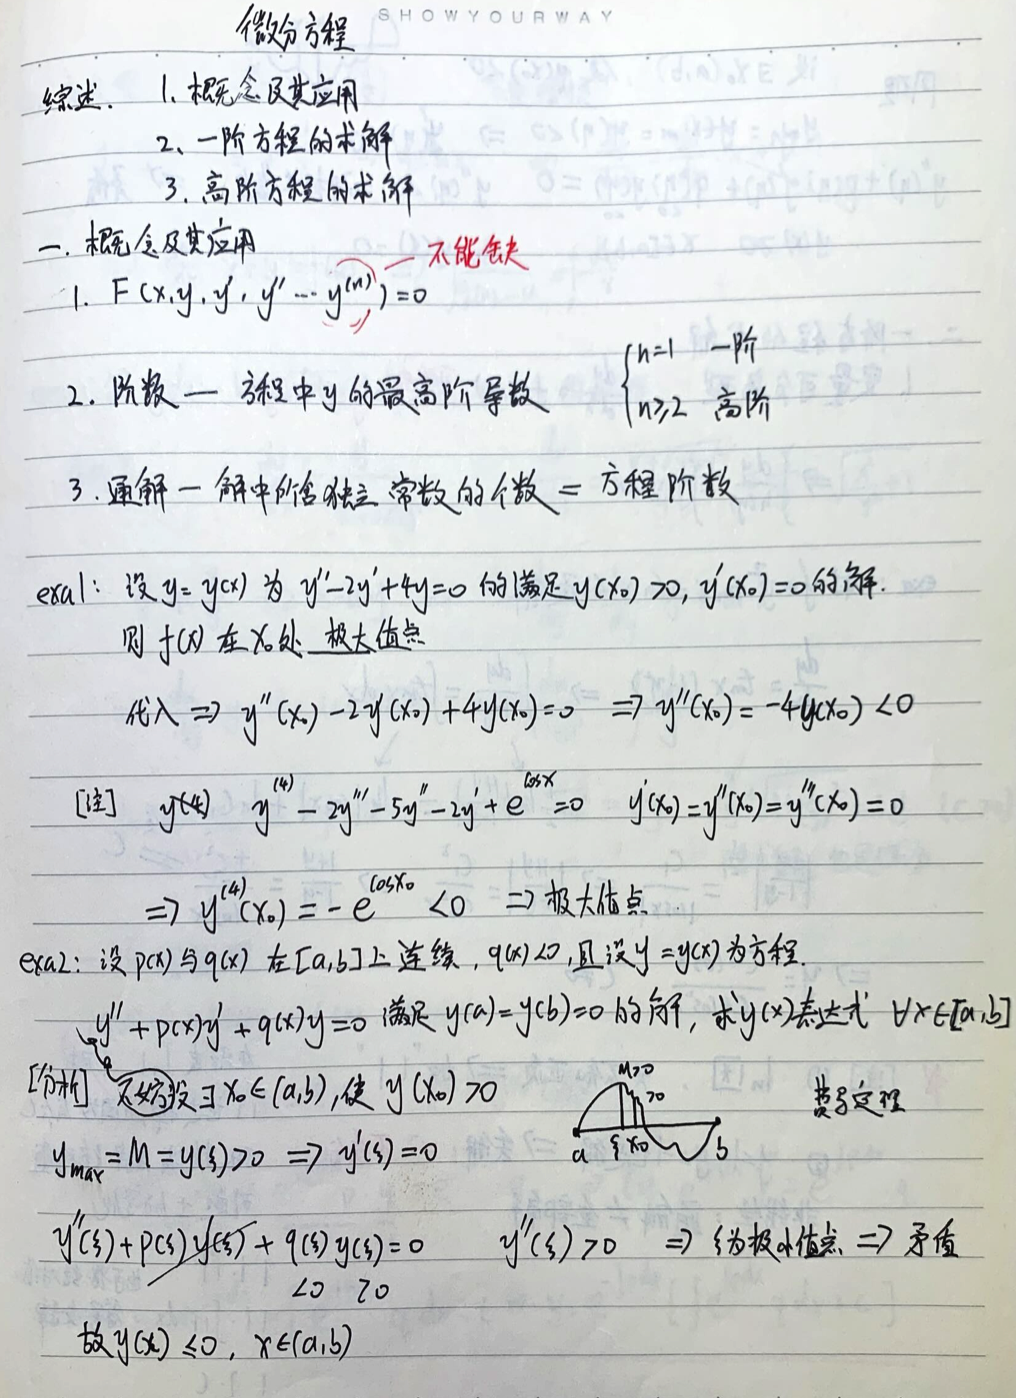 SHOWYOURWAY
微分方程
综述. 1. 概念及其应用
2、一阶方程的求解
3. 高阶方程的求解
一. 概念及其应用
不能缺
1. F(x,y,y',y''…y^(n))=0
2. 阶数 — 方程中y的最高阶导数 { n=1 一阶
n≥2 高阶
3. 通解 — 解中所含独立常数的个数 = 方程阶数
exa1: 设 y=y(x) 为 y''-2y'+4y=0 的满足 y(x₀)>0, y'(x₀)=0 的解.
则 f(x) 在 x₀处 极大值点
代入 ⇒ y''(x₀)-2y'(x₀)+4y(x₀)=0 ⇒ y''(x₀)=-4y(x₀)<0
[注] y^(4)-2y'''-5y''-2y'+e^cosx=0 y'(x₀)=y''(x₀)=y'''(x₀)=0
⇒ y^(4)(x₀)=-e^cosx₀<0 ⇒ 极大值点
exa2: 设 p(x)与q(x) 在[a,b]上连续, q(x)<0, 且设y=y(x)为方程.
y''+p(x)y'+q(x)y=0 满足 y(a)=y(b)=0的解, 求y(x)表达式 ∀x∈[a,b]
[分析] 设∃x₀∈(a,b), 使 y(x₀)>0
M>0
>0
a ξ x₀ b
费马定理
y_max=M=y(ξ)>0 ⇒ y'(ξ)=0
y''(ξ)+p(ξ)y'(ξ)+q(ξ)y(ξ)=0 y''(ξ)>0 ⇒ ξ为极小值点 ⇒ 矛盾
<0 >0
故y(x)≤0, x∈(a,b)